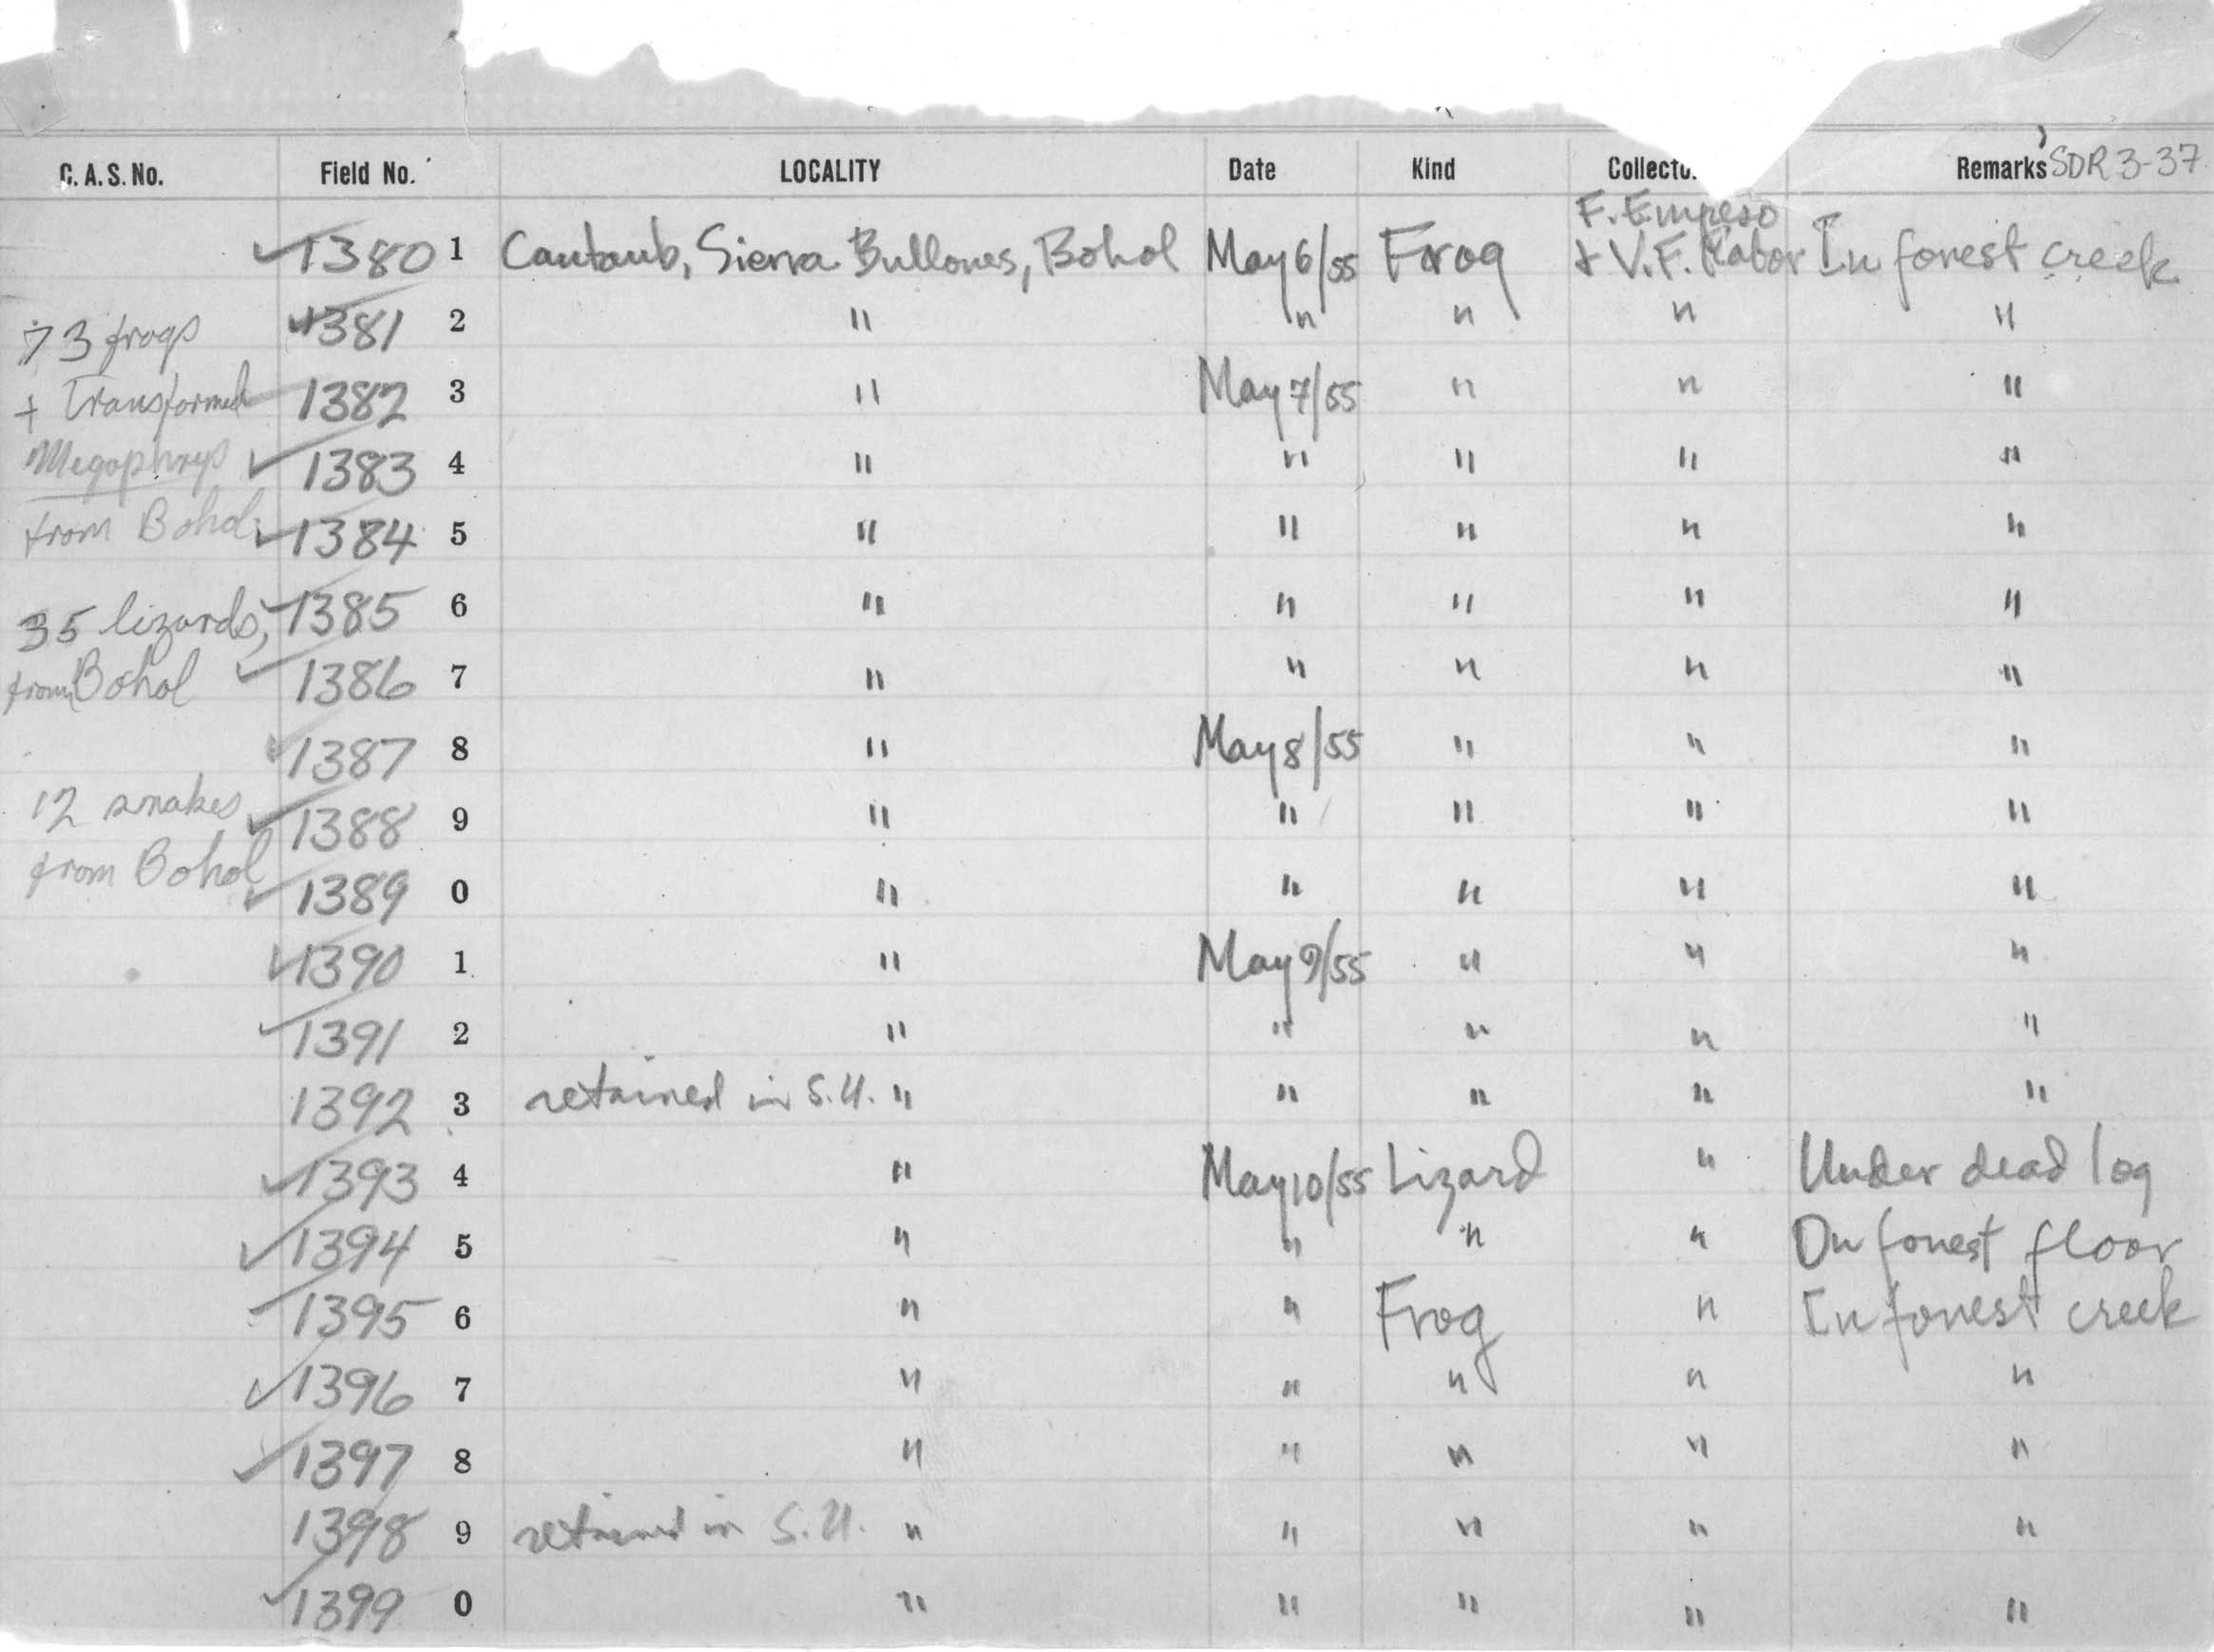 C.A.S. No. Field No. LOCALITY Date Kind Collecto Remarks SDR 3-37
F. Empeso
1380 1 Cantaub, Sierra Bullones, Bohol May 6/55 Frog + V.F. Rabor In forest creek
73 frogs 1381 2 " " " " "
+ Transformed 1382 3 " May 7/55 " " "
Megophrys 1383 4 " " " " "
from Bohol 1384 5 " " " " "
35 lizards, 1385 6 " " " " "
from Bohol 1386 7 " " " " "
1387 8 " May 8/55 " " "
12 snakes 1388 9 " " " " "
from Bohol 1389 0 " " " " "
1390 1 " May 9/55 " " "
1391 2 " " " " "
1392 3 retained in S.U. " " " " "
1393 4 " May 10/55 Lizard " Under dead log
1394 5 " " " " On forest floor
1395 6 " " Frog " In forest creek
1396 7 " " " " "
1397 8 " " " " "
1398 9 retained in S.U. " " " " "
1399 0 " " " " "